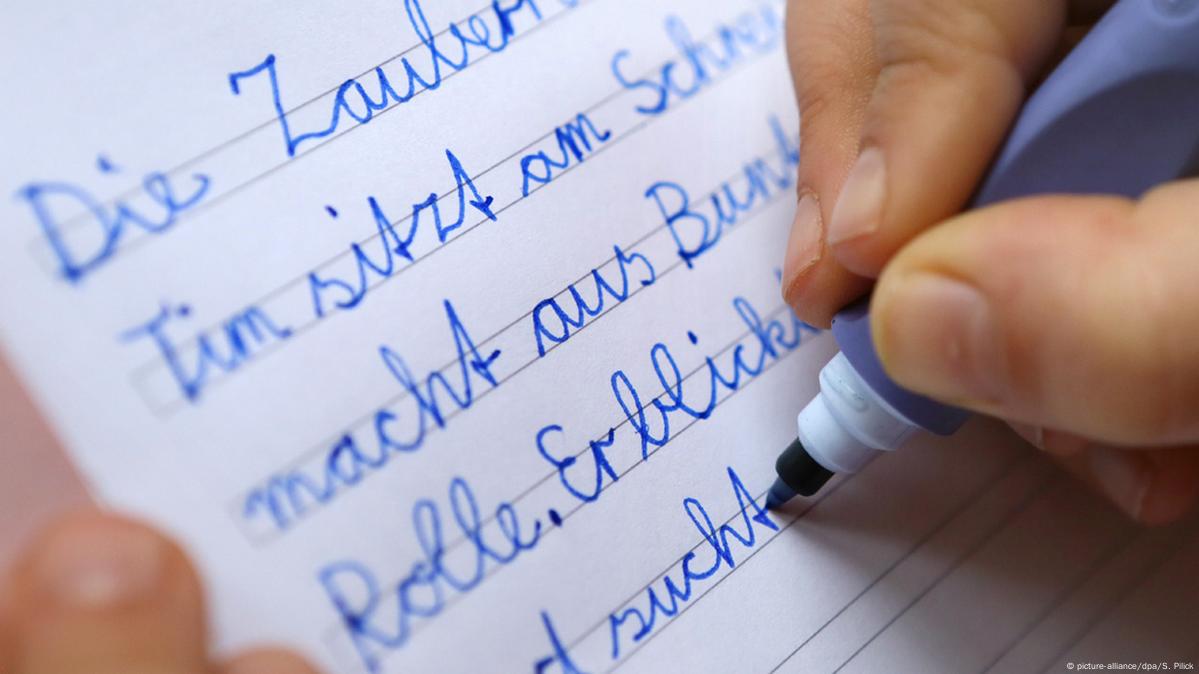 Die Zauber
Tim sitzt am Schrei
macht aus Bunt
Rolle. Er blickt
d sucht
© picture-alliance/dpa/S. Pilick